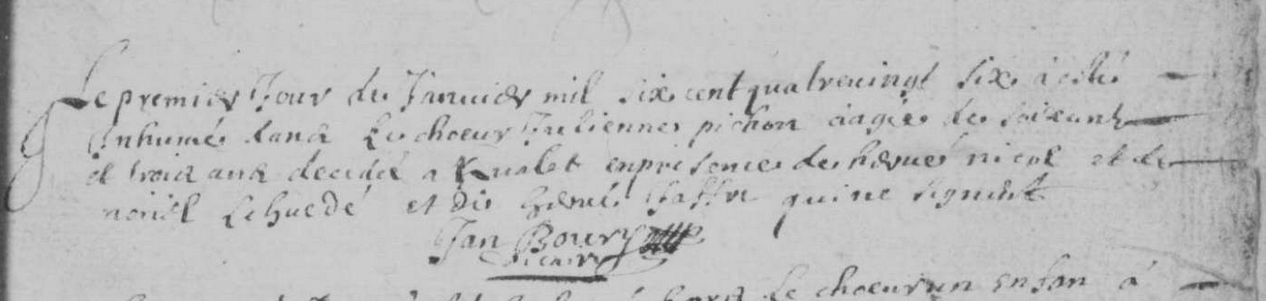 Le premier Jour de Januier mil six cent quatre uingt six à esté
Inhumé dans le choeur Julienne pichon aagée de soixante
et trois ans decedé a Kualet en presence de hervé nicol et de
noiel Lehuedé et de hervé qui ne signent
Jan Boury
vicaire
le choeur un enfan à